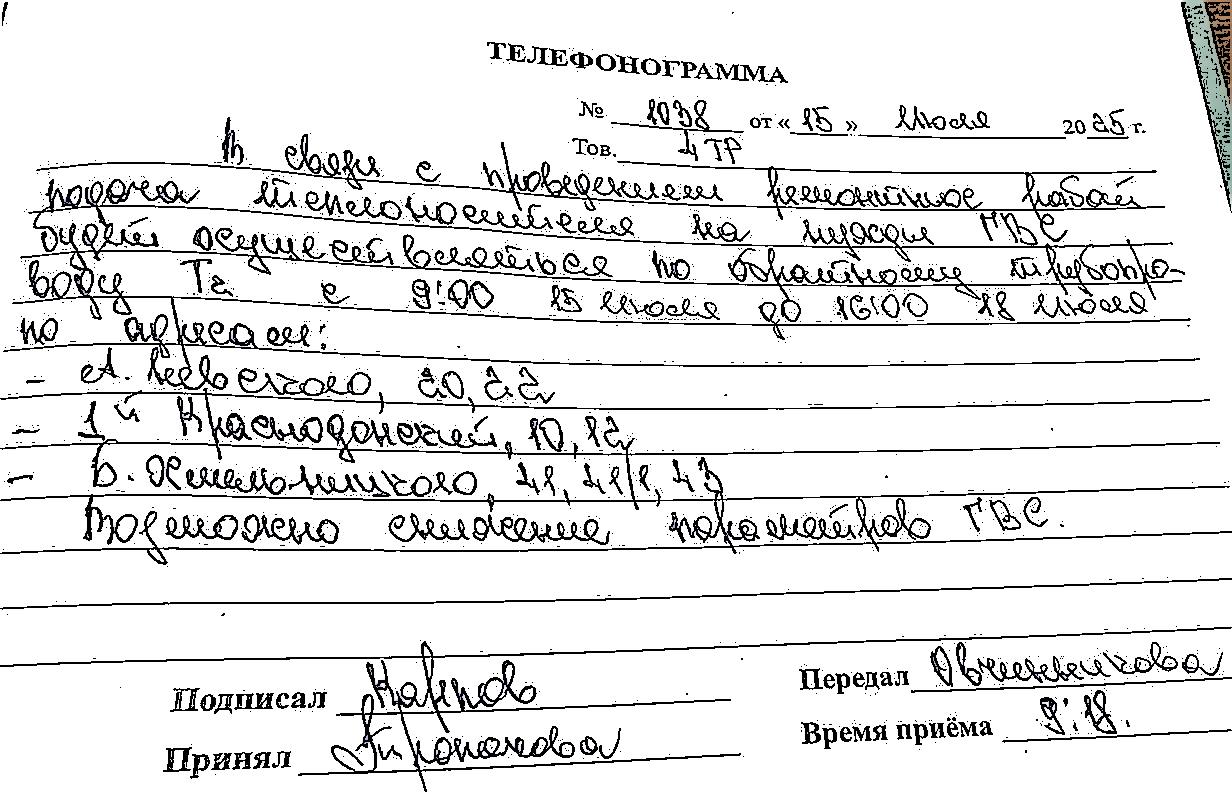 ТЕЛЕФОНОГРАММА
№ 1038 от « 15 » июля 2025 г.
Тов. 4 ТР
В связи с проведением ремонтных работ
подача теплоносителя на нужды ГВС
будет осуществляться по обратному трубопро-
воду Т2 с 9:00 15 июля до 16:00 18 июля
по адресам:
- А. Невского, 20, 22
- 1й Краснодонский, 10, 12
- Б. Хмельницкого, 41, 41/1, 43
Возможно снижение параметров ГВС.
Подписал Карпов Передал Овчинникова
Принял Время приёма 9:18.